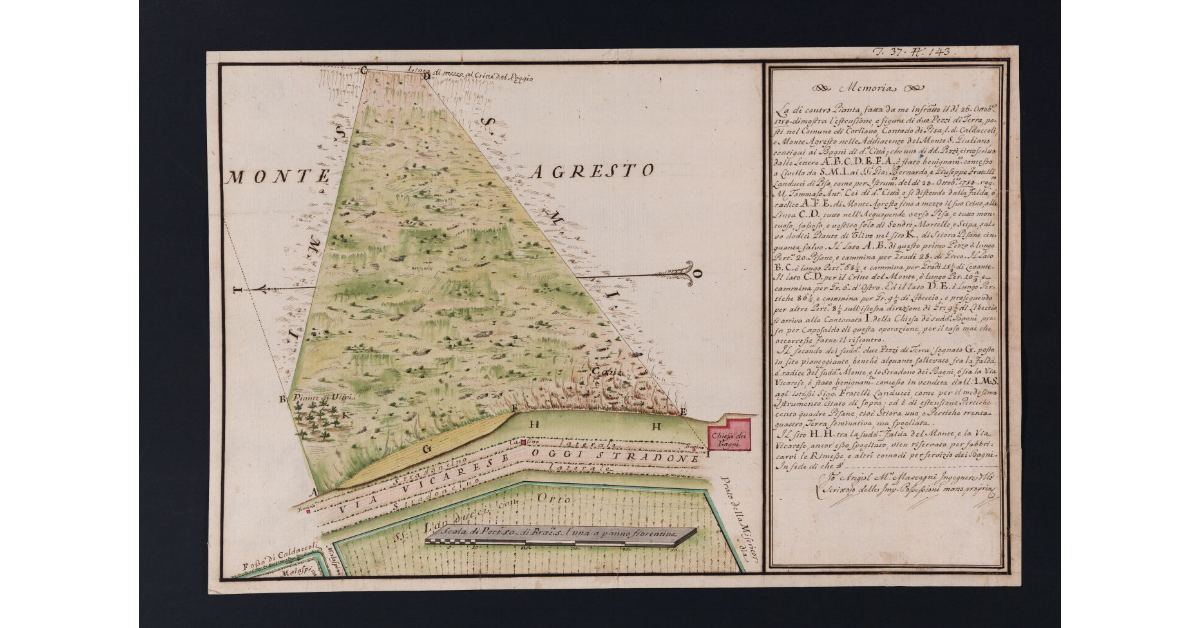 T. 37. 143.
Memoria
La di contro Pianta, fatta da me infratto il dì 26. Ottob.
1759. dimostra l'estensione e figura di due Pezzi di Terra, po-
sti nel Comune di Corliano, Contado di Pisa, l. d. Caldaccoli,
e Monte Agresto nelle Addiacenze del Monte S. Giuliano,
contigui ai Bagni di d. Città; che uno di dd. Pezzi
dalle Lettere A. B. C. D. E. F. A. è stato benignam. concesso
a Livello da S. M. I. ai SS. Gio: Bernardo, e Giuseppe Fratelli
Landucci di Pisa, come per Istrum. del dì 28. Ottob.
M. Tommaso Ant. Cei di d. Città e si distende dalla Falda, o
radice A. F. E. di Monte Agresto fino a mezzo il suo Crine, alla
Linea C. D. tutto nell'Acquapende verso Pisa, e tutto mon-
tuoso, sassoso, e vestito solo di Sondri, Mortelle, e Scipa, sal-
vo dodici Piante di Ulivo nel sito K, di Stiora Pisane cin-
quanta salvo. Il Lato A. B. di questo primo Pezzo è lungo
Pert. 20 Pisane, e cammina per Gradi 28. di Greco. Il Lato
B. C. è lungo Pert. 68½ e cammina per Gradi di Levante.
Il lato C. D. per il Crine del Monte, è lungo Per. e
cammina per Gr. 6. d'Ostro. Ed il lato D. E. è Lungo Per-
tiche 86½ e cammina per Gr. di Libeccio, e proseguendo
per altre Pert. sull'istessa direzione di Gr. di Libeccio
si arriva alla Cantonata I. della Chiesa de' sudd. Bagni, pre-
sa per Caposaldo di questa operazione, per il caso mai che
occorresse farne il riscontro.
Il secondo dei sudd. due Pezzi di Terra segnato G. posto
in sito pianeggiante, benchè alquanto sollevato, fra la Falda,
o radice del sudd. Monte, e lo Stradone dei Bagni, o sia la Via
Vicarese, è stato benignam. concesso in vendita dall. I. M. S.
agl'istessi Sigg. Fratelli Landucci come per il medesimo
Istrumento citato di sopra; ed è di estensione Pertiche
cento quadre Pisane, cioè Stiora una, e Pertiche trenta-
quattro Terra seminativa, ma spogliata.
Il sito H. H. tra la sudd. Falda del Monte, e la Via
Vicarese, ancor esso spogliato, vien riservato per fabbri-
carvi le Rimesse, e altri comodi per servizio dei Bagni.
In fede di che
Io Angiol M. Mascagni Ingegnere, e
Scrivaio delle Imp. Possessioni mano propria
C
D
Linea di mezzo al Crine del Poggio
MONTE
AGRESTO
S
S
M
M
I
I
I
O
B
Piante di Ulivi
K
Cave
F
E
H H
G
A
Chiesa dei
Bagni
I
Stradoncino laterale
VIA VICARESE OGGI STRADONE
Stradoncino laterale
SS. Landucci con Orto
Prato della Misericor-
dia
Scala di Per. 50. di Brac. 5. l'una a panno fiorentine
Fosso di Caldaccoli
Malaspina
Malaspi